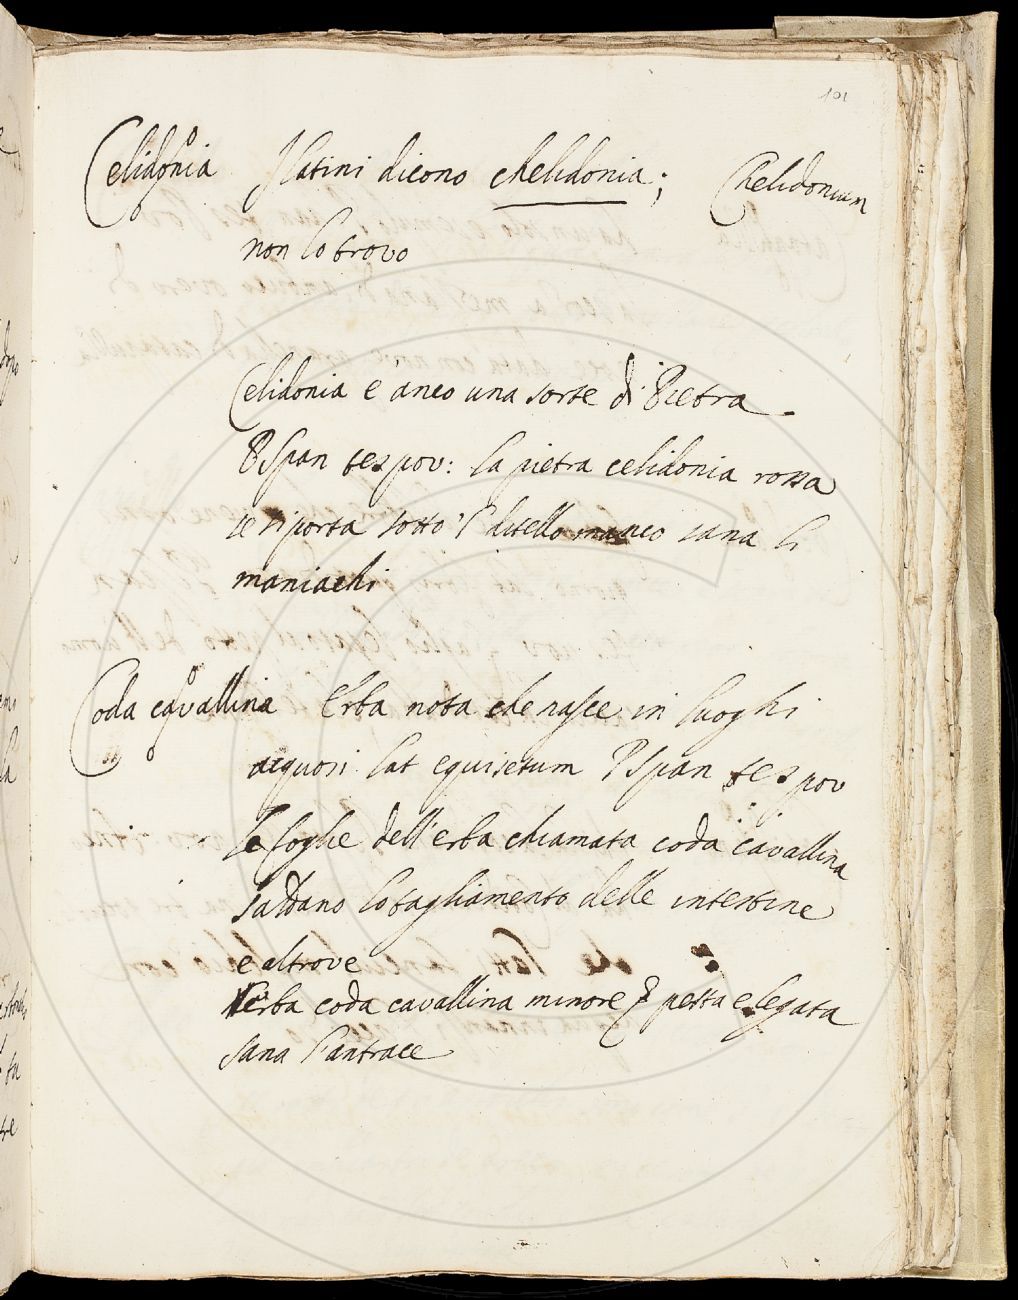 101
Celidonia I latini dicono chelidonia; Chelidonium
non lo trovo
Celidonia è anco una sorte di Pietra
P Span tes pov: la pietra celidonia rossa
se si porta sotto 'l ditello manco sana li
maniachi
Coda cavallina Erba nota che nasce in luoghi
acquosi lat equisetum P Span tes pov
le foglie dell'erba chiamata coda cavallina
saldano lo tagliamento delle intestine
e altrove
L'erba coda cavallina minore pesta e legata
sana l'antrace